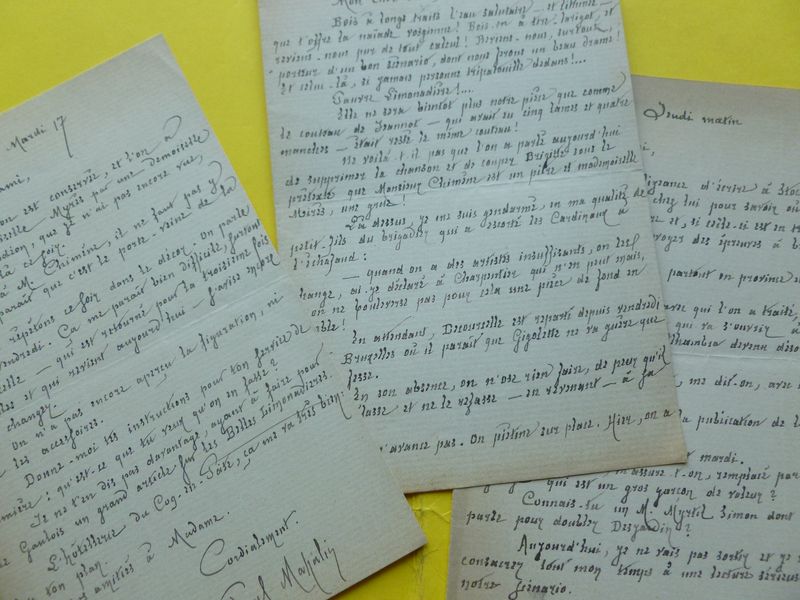 Mardi 17
ami,
on est conservée, et l'on a
Myris par une demoiselle
que je n'ai pas encore vue,
là ce soir.
à M. Chimène, il ne faut pas y
paraît que c'est le porte-veine de la
répétons ce soir dans le décor. On parle
vendredi. Ça me paraît bien difficile, surtout
celle — qui est retourné pour la troisième fois
et qui revient aujourd'hui — faisait encore
changer.
On n'a pas encore aperçu la figuration, ni
les accessoires.
Donne-moi tes instructions pour ton service de
première : qu'est-ce que tu veux qu'on en fasse ?
Je ne t'en dis pas davantage, ayant à faire pour
Gaulois un grand article sur les Belles Limonadières.
L'hôtellerie du Coq-et-Poise, ça me va très bien
ton plan.
et amitiés à Madame.
Cordialement.
Paul Mahalin
Mon cher
Bois à longs traits l'eau salutaire — et lithinée —
que t'offre la naïade vosgienne ! Bois-en à tire-larigot, et
reviens-nous pur de tout calcul ! Reviens-nous, surtout,
porteur d'un bon scénario, dont nous ferons un beau drame !
Et celui-là, si jamais personne tripatouille dedans !...
Pauvre Limonadière !...
Elle ne sera bientôt plus notre pièce que comme
le couteau de Jeannot — qui avait eu cinq lames et quatre
manches — était resté le même couteau !
Ne voilà-t-il pas que l'on a parlé aujourd'hui
de supprimer la chanson et de couper Brigitte sous le
prétexte que Monsieur Chimène est un pitre et mademoiselle
Méris, une grue !
Là dessus, je me suis gendarmé, en ma qualité de
petit-fils du brigadier qui a escorté les Cardinaux à
l'échafaud :
— quand on a des artistes insuffisants, on les
change, ai-je déclaré à Charpentier qui n'en peut mais,
on ne bouleverse pas pour cela une pièce de fond en
comble !
En attendant, Decourcelle est reparti depuis vendredi
Bruxelles où il paraît que Gigolette ne va guère que
fesse.
En son absence, on n'ose rien faire, de peur qu'il
fasse et ne le refasse — en revenant — à sa
n'avance pas. On piétine sur place. Hier, on a
Jeudi matin
d'écrire à
chez lui pour savoir où
et, si celle-ci est en
voyer des épreuves à
partout en province
que l'on a traité,
qui va s'ouvrir à
Alhambra devenu
me dit-on, avec
la publication de
mardi.
assure-t-on, remplacé par
qui est un gros garçon de valeur ?
Connais-tu un M. Myrtil Simon dont
parle pour doubler Desjardin ?
Aujourd'hui, je ne vais pas sortir et je
consacrer tout mon temps à une lecture sérieuse
notre scénario.